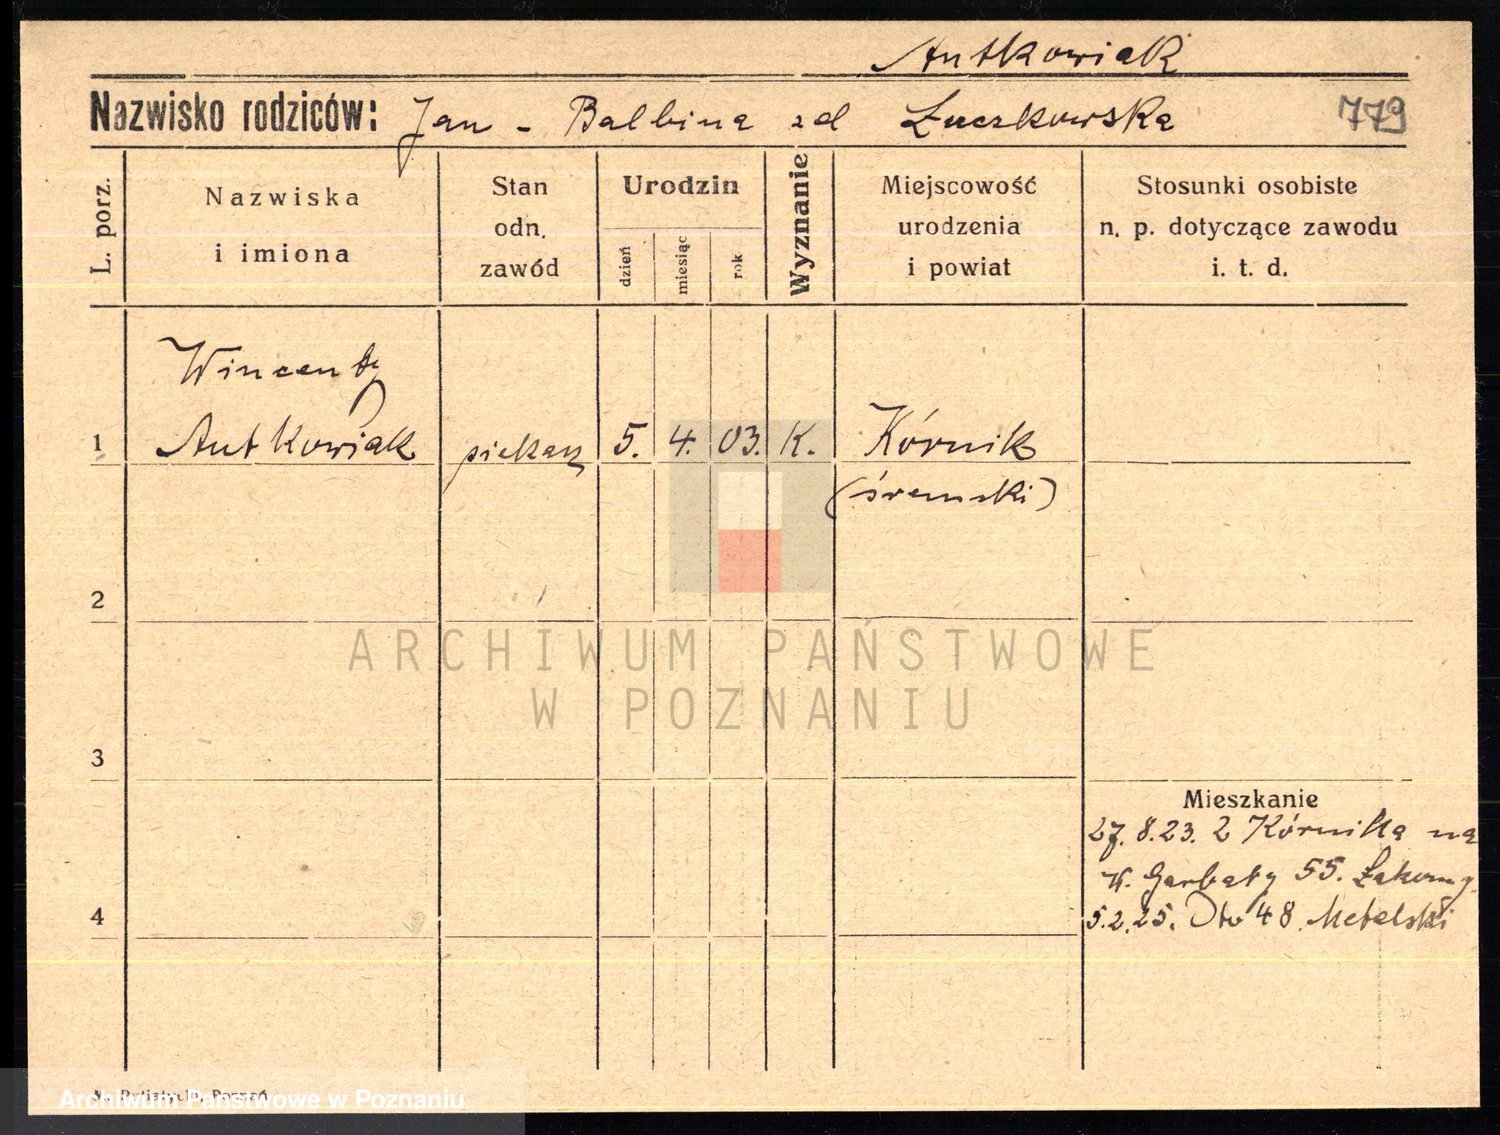 Antkowiak
Nazwisko rodziców: Jan - Balbina zd Łuczkowska 779
L. porz.
Nazwiska
i imiona
Stan
odn.
zawód
Urodzin
dzień
miesiąc
rok
Wyznanie
Miejscowość
urodzenia
i powiat
Stosunki osobiste
n. p. dotyczące zawodu
i. t. d.
Wincenty
1 Antkowiak piekarz 5. 4. 03. K. Kórnik
(śremski)
2
ARCHIWUM PAŃSTWOWE
W POZNANIU
3
Mieszkanie
27.8.23. z Kórnika na
W. Garbary 55.
4
5.2.25. 48 Metelski
Poznań
Archiwum Państwowe w Poznaniu